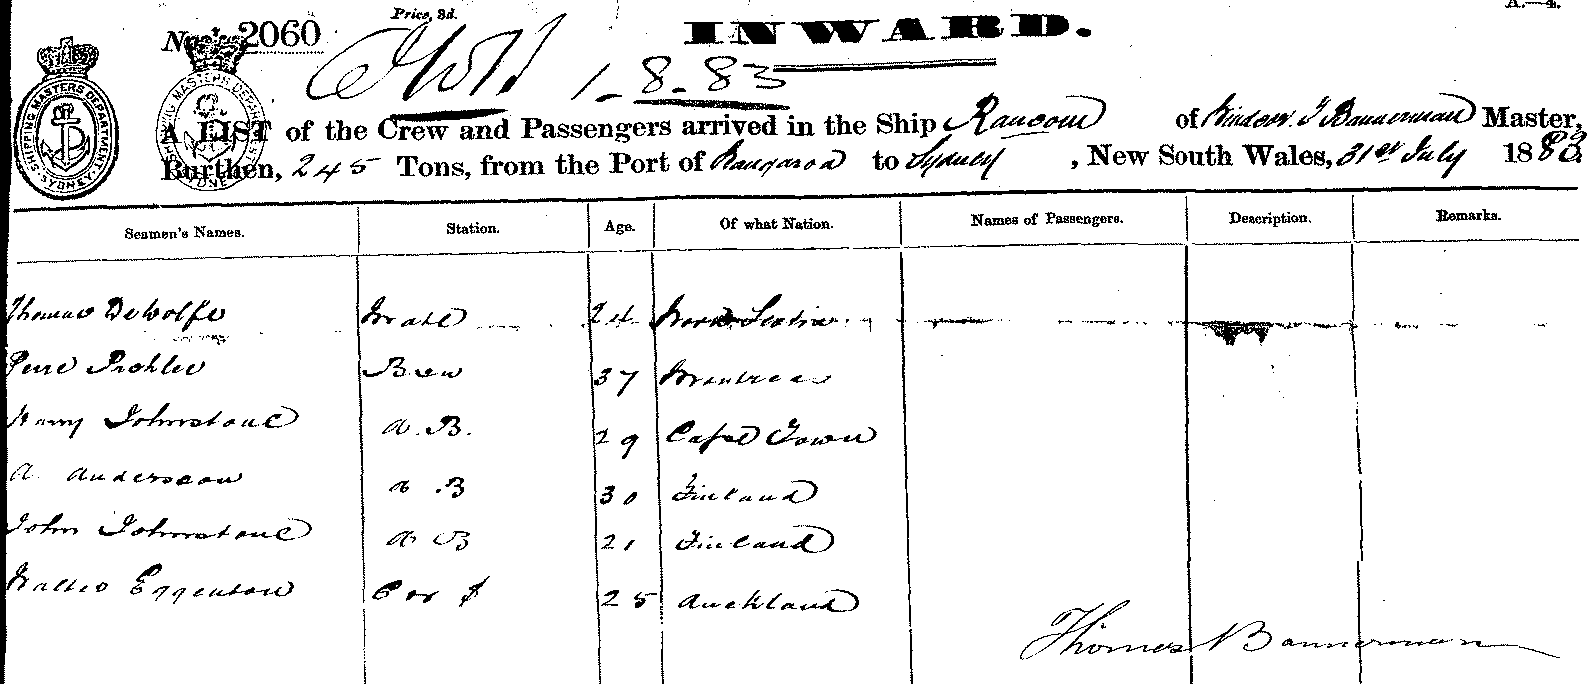 A.—4.
Price, 3d.
No. 2060
INWARD.
1-8-83
SHIPPING MASTERS DEPARTMENT SYDNEY
SHIPPING MASTERS DEPARTMENT SYDNEY
A LIST of the Crew and Passengers arrived in the Ship of Windsor T Bannerman Master,
Burthen, 245 Tons, from the Port of to Sydney, New South Wales, 31st July 1883
Seamen's Names. Station. Age. Of what Nation. Names of Passengers. Description. Remarks.
Thomas DeWolfe Mate 24 Nova Scotia
37 Montreal
Harry Johnstone A.B. 29 Cape Town
A. Andersson A.B 30 Finland
John Johnstone A B 21 Finland
25 Auckland
Thomas Bannerman